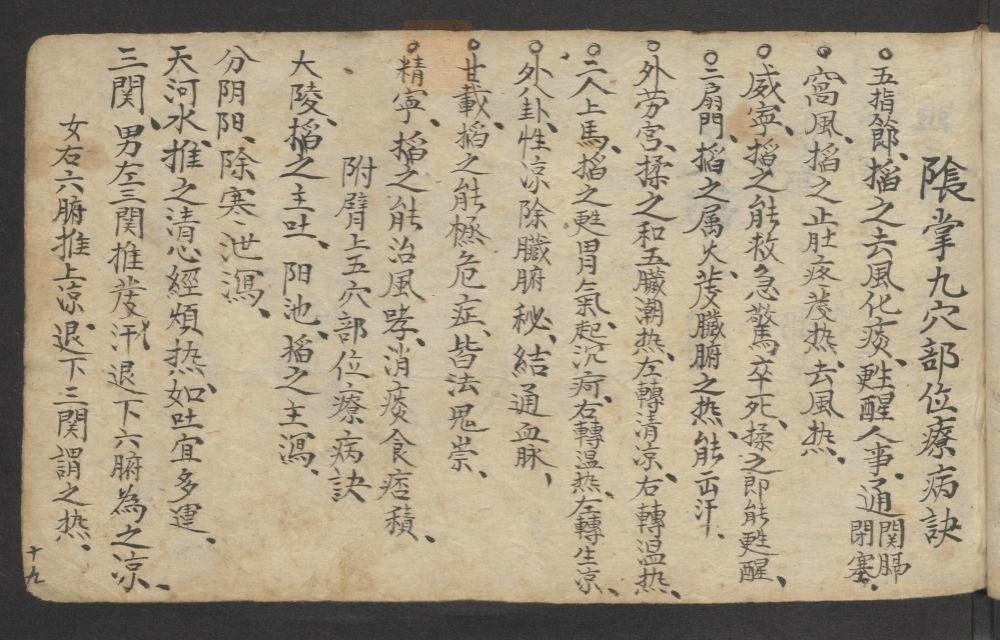 陰掌九穴部位療病訣
○五指節、掐之去風化痰、甦醒人事、通關膈閉塞、
○窩風、掐之止肚疼发热、去風热、
○威寧、掐之能救急驚卒死、揉之即能甦醒、
○二扇門、掐之属火、发臟腑之热、能出汗、
○外劳宮、揉之和五臟潮热、左轉清凉、右轉温热、
○二人上馬、掐之甦胃氣、起沉疴、右轉温热、左轉生凉、
○外八卦、性凉除臟腑秘結通血脉、
○甘載、掐之能極危症、皆法鬼祟、
○精寧、掐之能治風哮、消痰食痞積、
附臂上五穴部位療病訣
大陵掐之主吐、阳池、掐之主瀉、
分阴阳、除寒泄瀉、
天河水、推之清心經煩热、如吐宜多運、
三関、男左三関推发汗、退下六腑為之凉、
女右六腑推上凉、退下三関謂之热、
十九